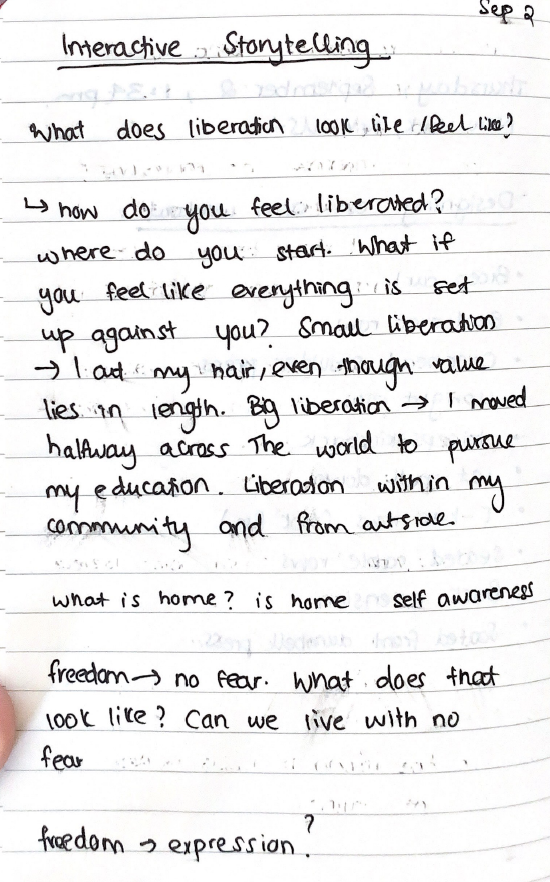 Sep 2
Interactive Storytelling
What does liberation look like / feel like?
↳ how do you feel liberated?
where do you start. What if
you feel like everything is set
up against you? Small liberation
→ I cut my hair, even though value
lies in length. Big liberation → I moved
halfway across The world to pursue
my education. Liberation within my
community and from outside.
what is home? is home self awareness
freedom → no fear. What does that
look like? Can we live with no
fear
freedom → expression?